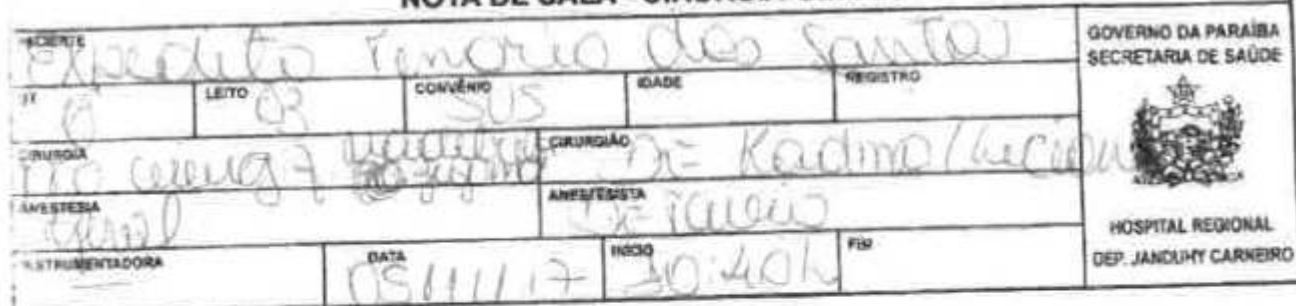 NOTA DE SALA - CIRURGIA
PACIENTE
Expedito Tenorio dos Santos
LEITO
03
CONVÊNIO
SUS
IDADE
REGISTRO
CIRURGIA
CIRURGIÃO
Dr Kadmo / Luciano
ANESTESIA
Geral
ANESTESISTA
INSTRUMENTADORA
DATA
05/11/17
INÍCIO
10:40h
FIM
GOVERNO DA PARAÍBA
SECRETARIA DE SAÚDE
HOSPITAL REGIONAL
DEP. JANDUHY CARNEIRO